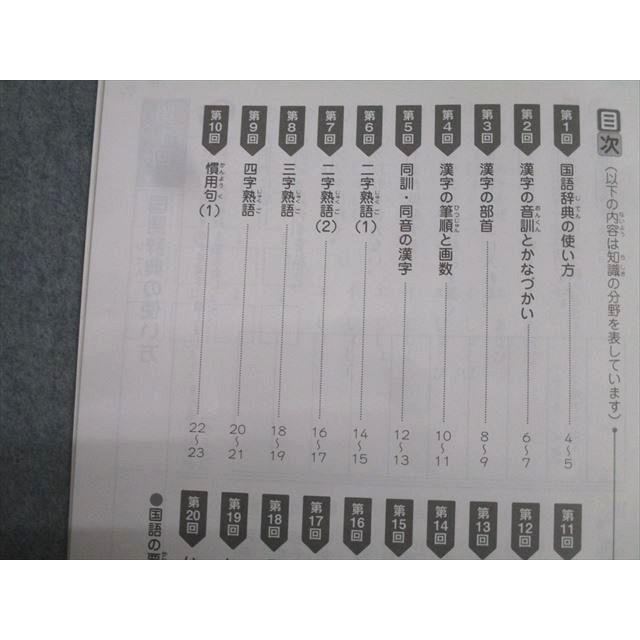 目次
（以下の内容は知識の分野を表しています）
第1回 国語辞典の使い方 4〜5
第2回 漢字の音訓とかなづかい 6〜7
第3回 漢字の部首 8〜9
第4回 漢字の筆順と画数 10〜11
第5回 同訓・同音の漢字 12〜13
第6回 二字熟語（1） 14〜15
第7回 二字熟語（2） 16〜17
第8回 三字熟語 18〜19
第9回 四字熟語 20〜21
第10回 慣用句（1） 22〜23
第11回
第12回
第13回
第14回
第15回
第16回
第17回
第18回
第19回
第20回
●国語の要